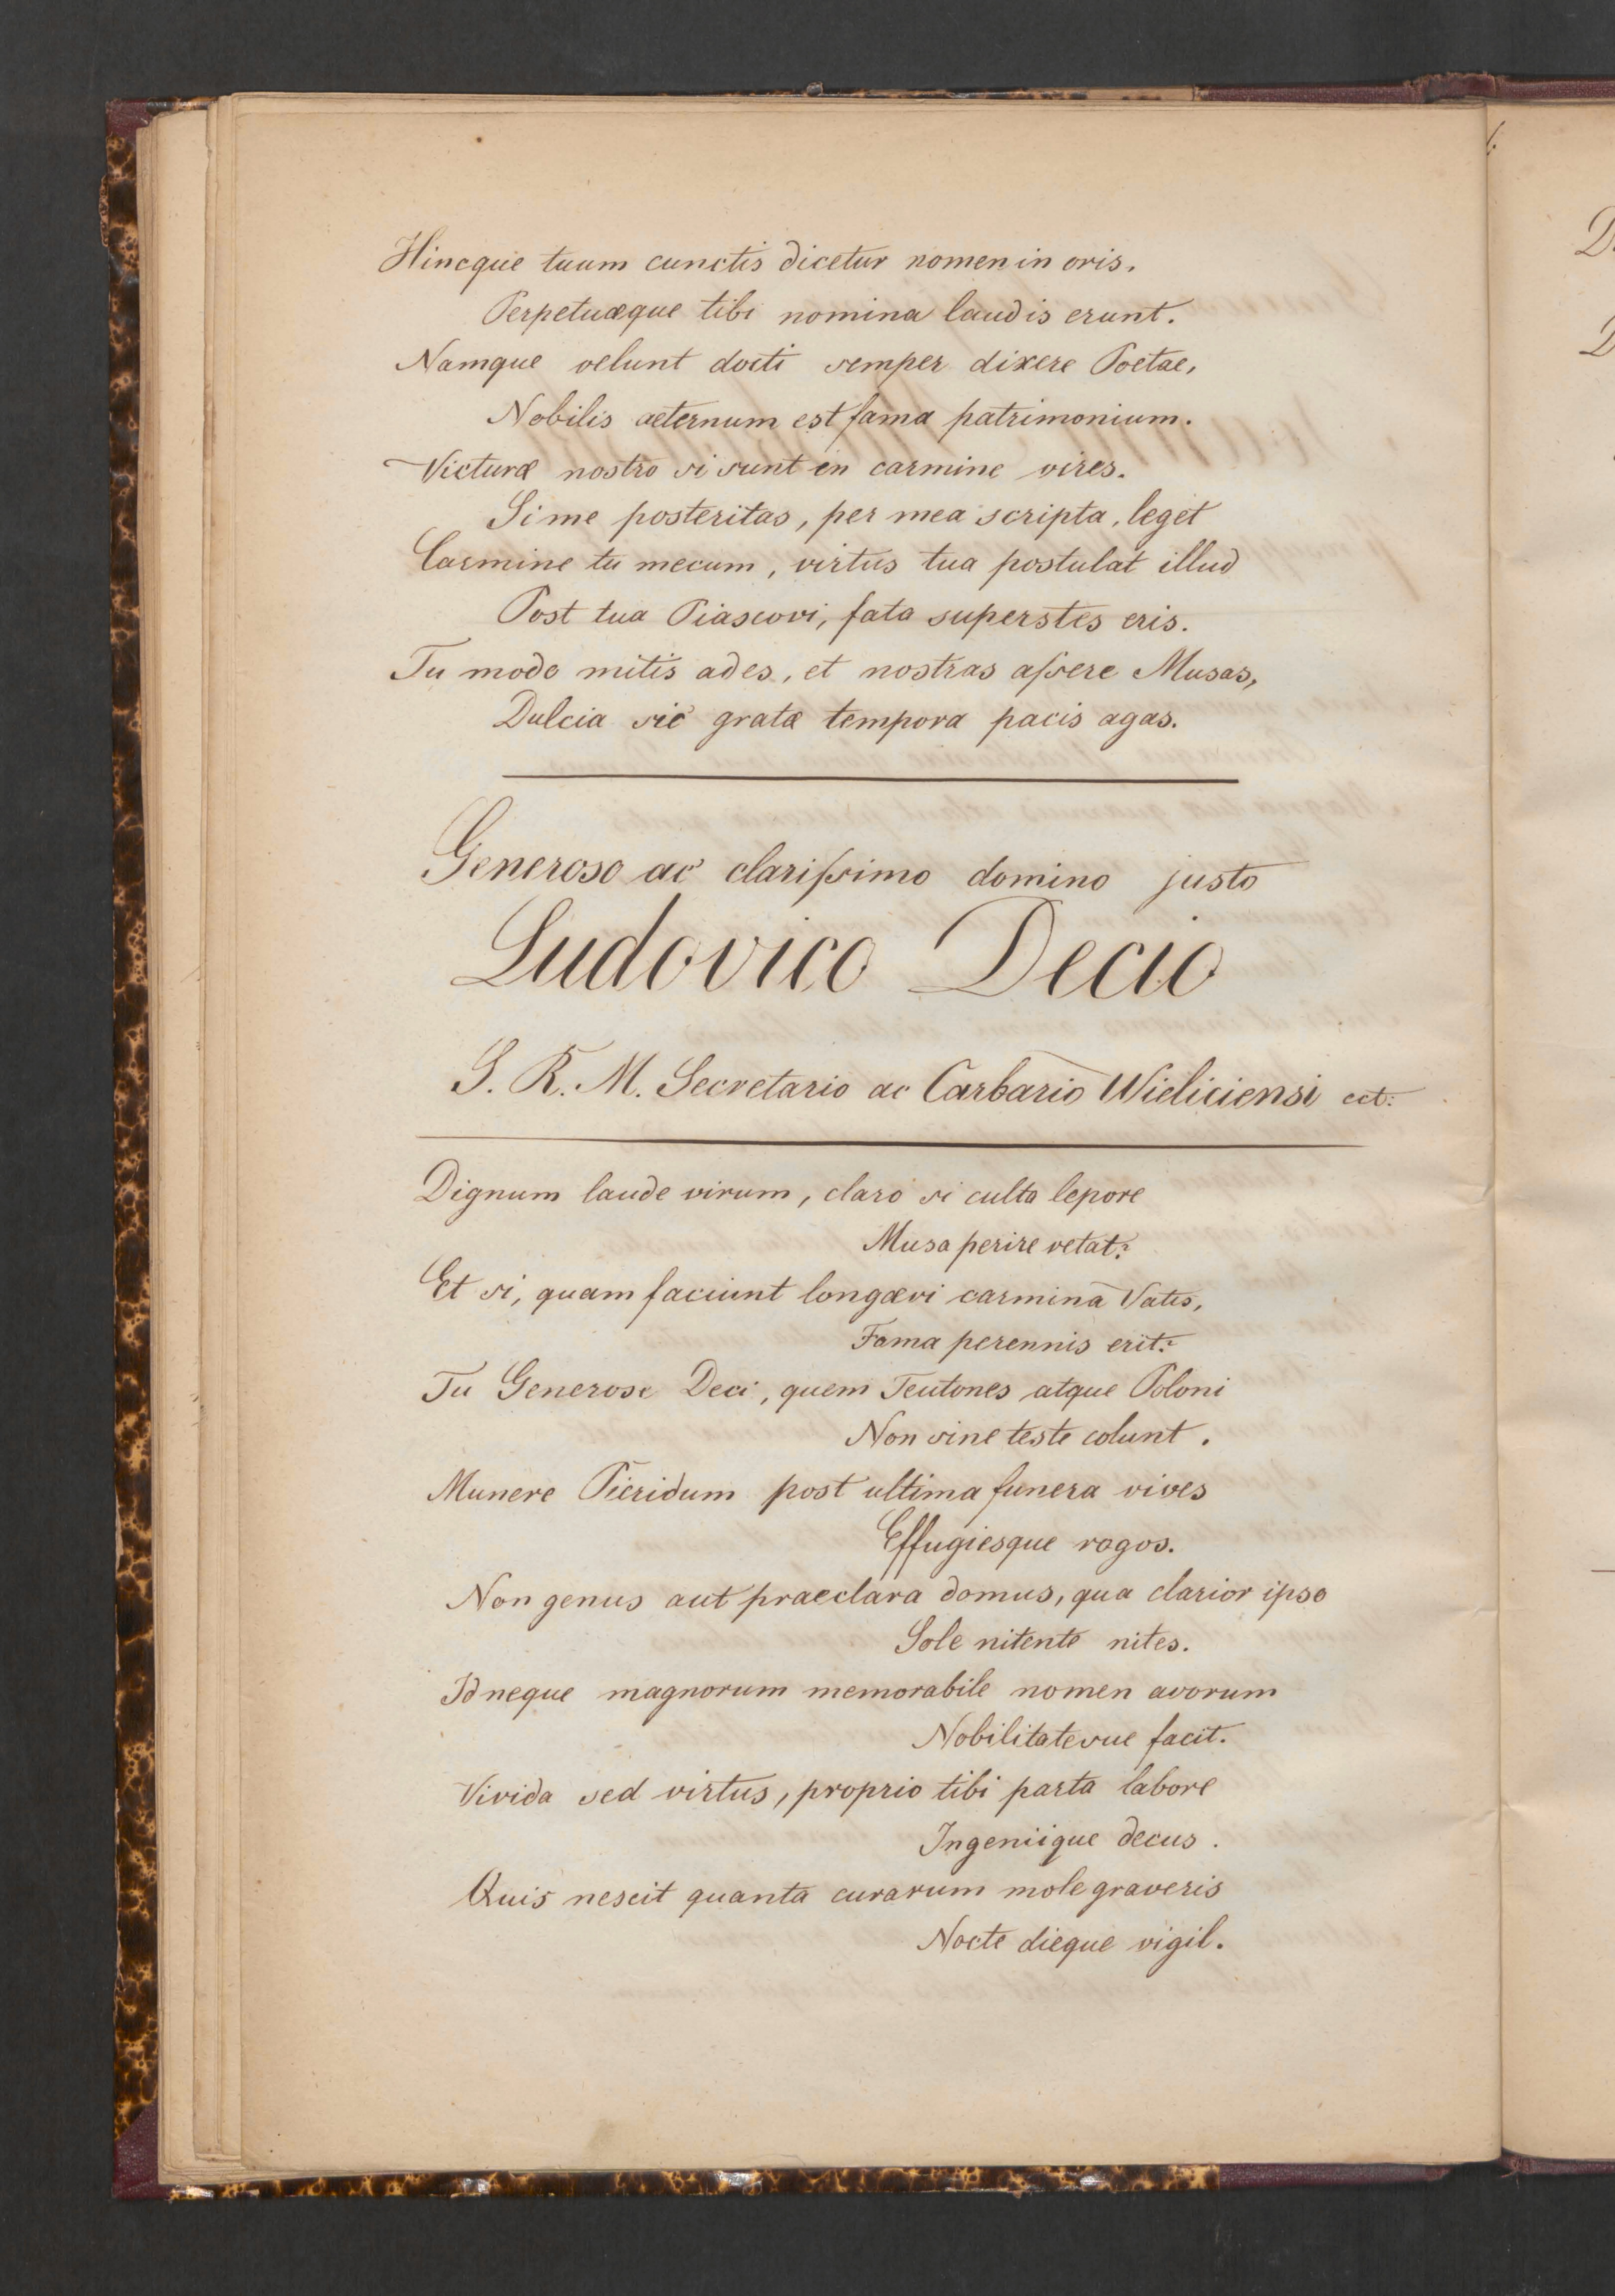 Hincque tuum cunctis dicetur nomen in oris.
Perpetuæque tibi nomina laudis erunt.
Namque velunt docti semper dixere Poetae,
Nobilis aeternum est fama patrimonium.
Victuræ nostro si sunt en carmine vires.
Si me posteritas, per mea scripta, leget
Carmine tu mecum, virtus tua postulat illud
Post tua Piascovi, fata superstes eris.
Tu modo mitis ades, et nostras aſsere Musas,
Dulcia sic gratæ tempora pacis agas.
Generoso ac clariſsimo domino justo
Ludovico Decio
S. R. M. Secretario ac Carbario Wieliciensi ect:
Dignum laude virum, claro si culta lepore
Musa perire vetat:
Et si, quam faciunt longævi carmina Vatis,
Fama perennis erit:
Tu Generose Deci, quem Teutones atque Poloni
Non sine teste colunt.
Munere Pieridum post ultima funera vives
Effugiesque rogos.
Non genus aut praeclara domus, qua clarior ipso
Sole nitente nites.
Id neque magnorum memorabile nomen avorum
Nobilitatesue facit.
Vivida sed virtus, proprio tibi parta labore
Ingeniique decus.
Quis nescit quanta curarum mole graveris
Nocte dieque vigil.